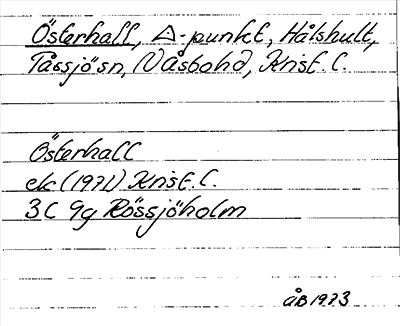 Österhall, △-punkt, Hålshult,
Tåssjösn, N Åsbohd, Krist. l.
Österhall
ek (1971) Krist. l.
3C 9g Rössjöholm
ÅB 1973